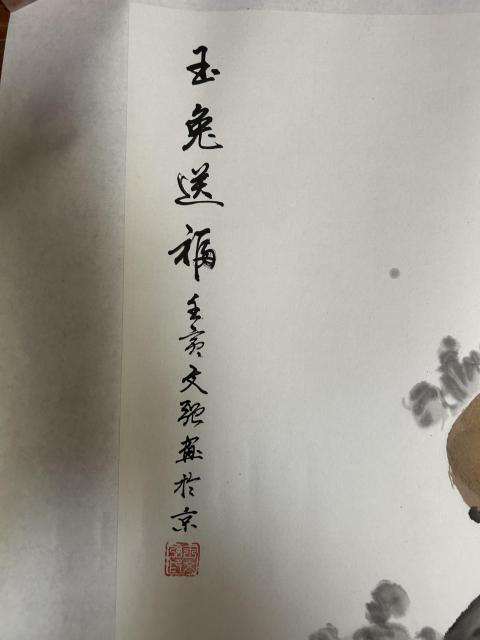 玉兔送福壬寅文强画於京